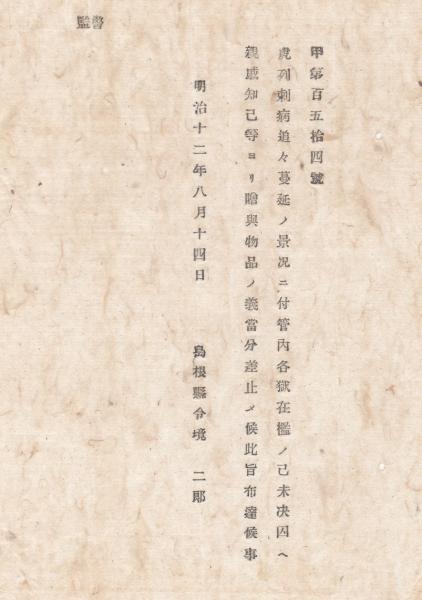 監警
甲第百五拾四號
虎列剌病追々蔓延ノ景况ニ付管内各獄在檻ノ已未决囚ヘ
親戚知己等ヨリ贈與物品ノ義當分差止メ候此旨布達候事
明治十二年八月十四日
島根縣令境二郎